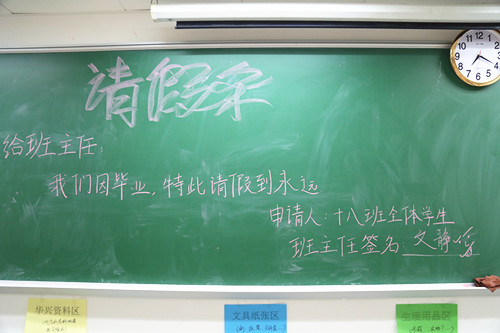 请假条
给班主任:
我们因毕业,特此请假到永远
申请人:十八班全体学生
班主任签名:文静
华兴资料区
文具纸张区
生理用品区
12
1
2
3
4
5
6
7
8
9
10
11